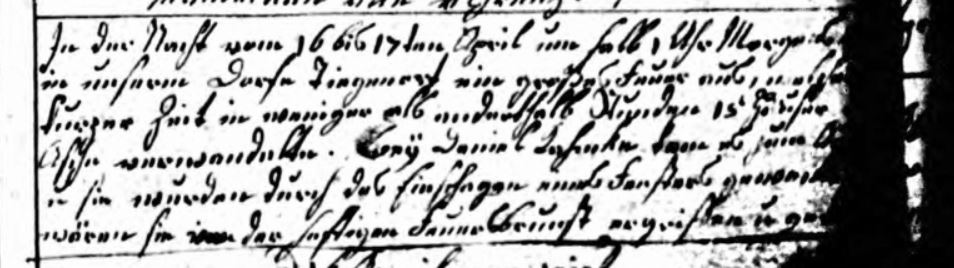 In der Nacht vom 16 bis 17ten April um halb 1 Uhr Morgens
in unserm Dorfe Tiegenort ein großes Feuer aus, welche
kurzer Zeit in weniger als anderthalb Stunden 15 Häuser
Asche verwandelte. Bey Daniel kam es zum
u sie wurden durch das Einschlagen eines Fensters geweckt
wären sie von der heftigen Feuersbrunst ergriffen u